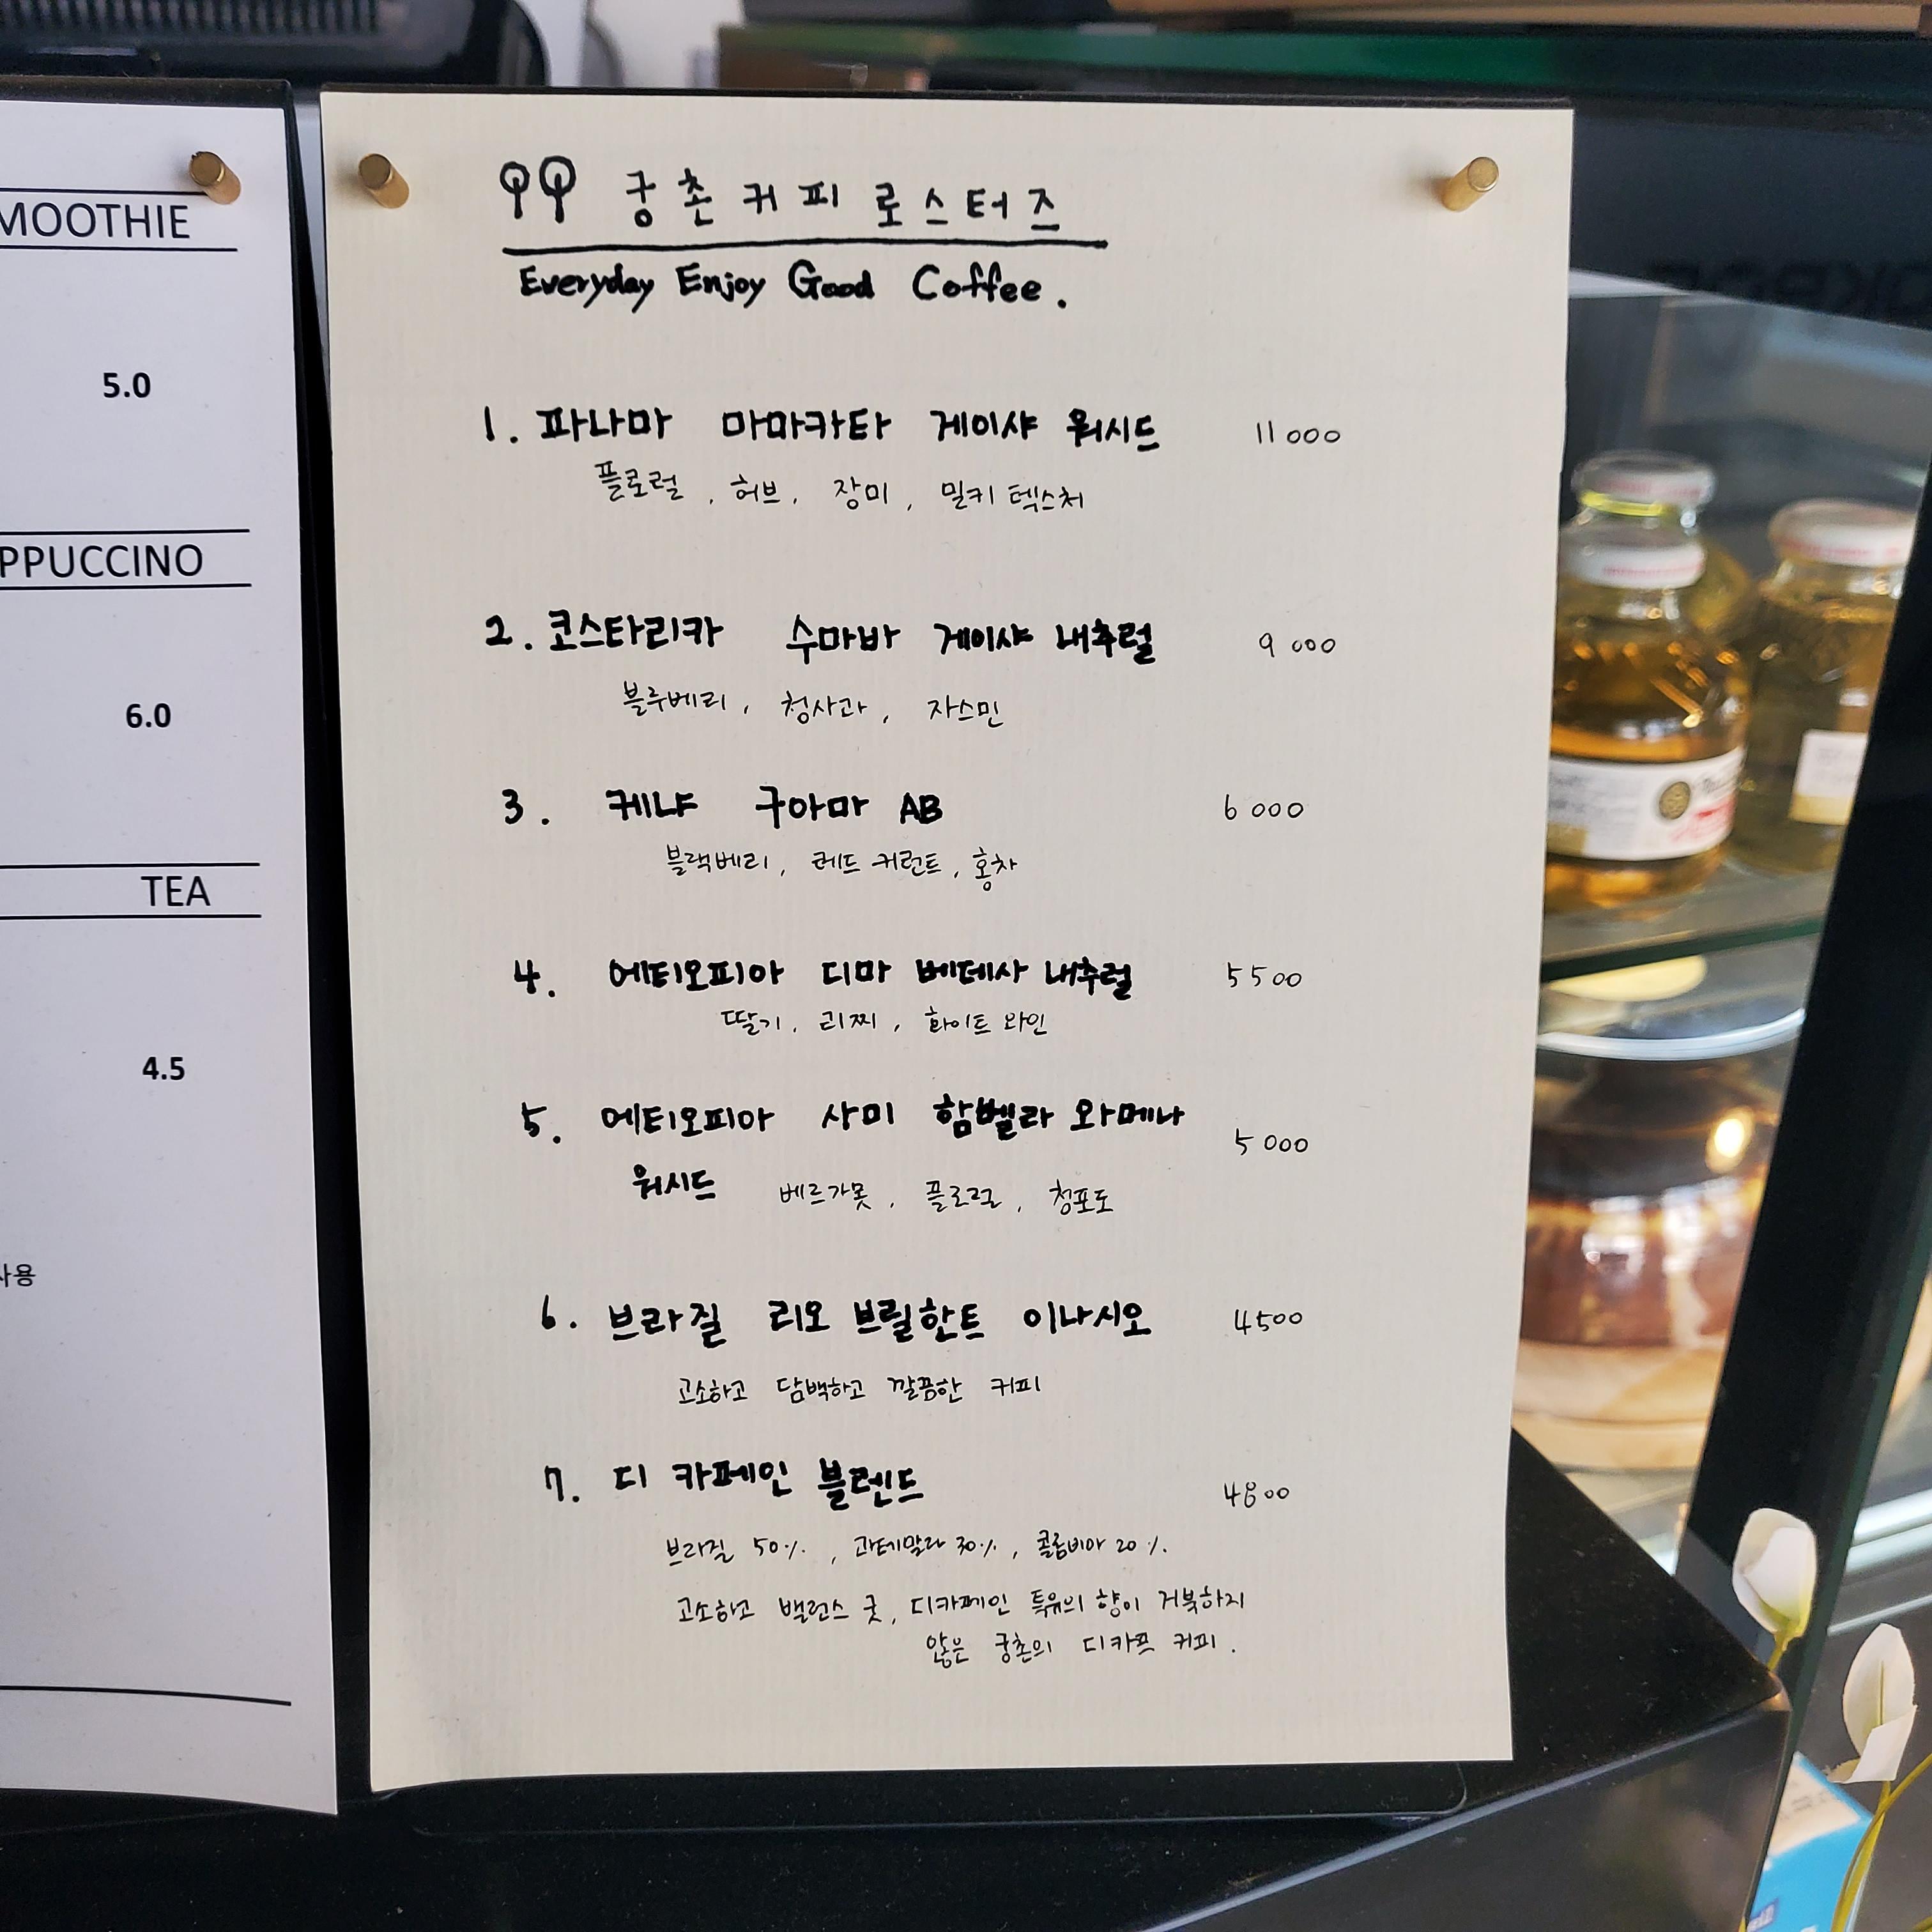 MOOTHIE
5.0
PPUCCINO
6.0
TEA
4.5
사용
궁촌커피로스터즈
Everyday Enjoy Good Coffee.
1. 파나마 마마카타 게이샤 워시드 11000
플로럴, 허브, 장미, 밀키 텍스처
2. 코스타리카 수마바 게이샤 내추럴 9000
블루베리, 청사과, 자스민
3. 케냐 구아마 AB 6000
블랙베리, 레드 커런트, 홍차
4. 에티오피아 디마 베데사 내추럴 5500
딸기, 리찌, 화이트 와인
5. 에티오피아 사미 함벨라 와메나 5000
워시드 베르가못, 플로럴, 청포도
6. 브라질 리오 브릴한트 이나시오 4500
고소하고 담백하고 깔끔한 커피
7. 디 카페인 블렌드 4800
브라질 50%, 과테말라 30%, 콜롬비아 20%.
고소하고 밸런스 굿, 디카페인 특유의 향이 거북하지
않은 궁촌의 디카프 커피.